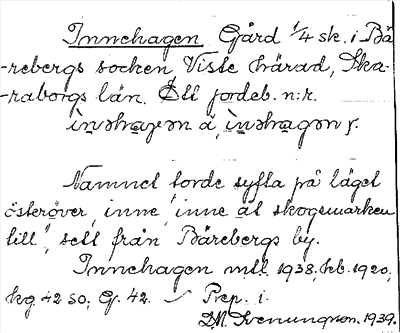 Innehagen Gård 1/4 sk. i Bä
-rebergs socken, Viste härad, Ska-
-raborgs län. Ett jordeb. n:r.
Namnet torde syfta på läget
österöver, "inne", inne åt skogsmarken
till", sett från Bärebergs by.
Innehagen mtl. 1938, kb. 1920,
kg 42 SO, G. 42. Prep. i.
D.M. Svenungson. 1939.